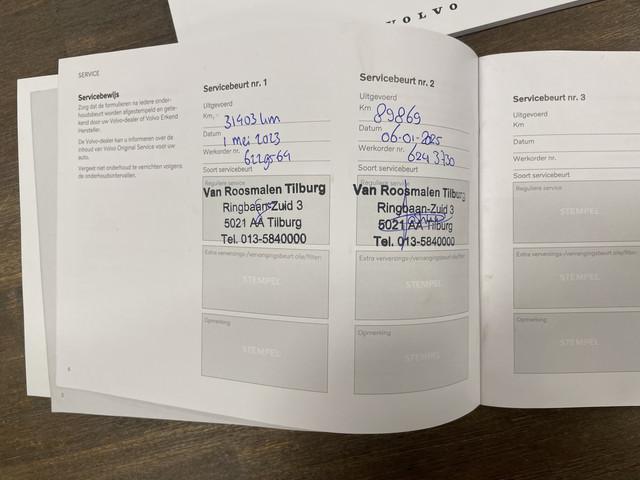 VOLVO
SERVICE
Servicebewijs
Zorg dat de formulieren na iedere onder-
houdsbeurt worden afgestempeld en gete-
kend door uw Volvo-dealer of Volvo Erkend
Hersteller.
De Volvo-dealer kan u informeren over de
inhoud van Volvo Original Service voor uw
auto.
Vergeet niet onderhoud te verrichten volgens
de onderhoudsintervallen.
6
Servicebeurt nr. 1
Uitgevoerd
Km, 31403 km
Datum 1 mei 2023
Werkorder nr. 6229564
Soort servicebeurt
Reguliere service
Van Roosmalen Tilburg
Ringbaan-Zuid 3
5021 AA Tilburg
Tel. 013-5840000
Extra verversings-/vervangingsbeurt olie/filter:
STEMPEL
Opmerking
STEMPEL
Servicebeurt nr. 2
Uitgevoerd
Km 89869
Datum 06-01-2025
Werkorder nr. 6243730
Soort servicebeurt
Reguliere service
Van Roosmalen Tilburg
Ringbaan-Zuid 3
5021 AA Tilburg
Tel. 013-5840000
Extra verversings-/vervangingsbeurt olie/filter:
STEMPEL
Opmerking
STEMPEL
Servicebeurt nr. 3
Uitgevoerd
Km
Datum
Werkorder nr.
Soort servicebeurt
Reguliere service
STEMPEL
Extra verversings-/vervangingsbeurt olie/filter:
STEMPEL
Opmerking
STEMPEL